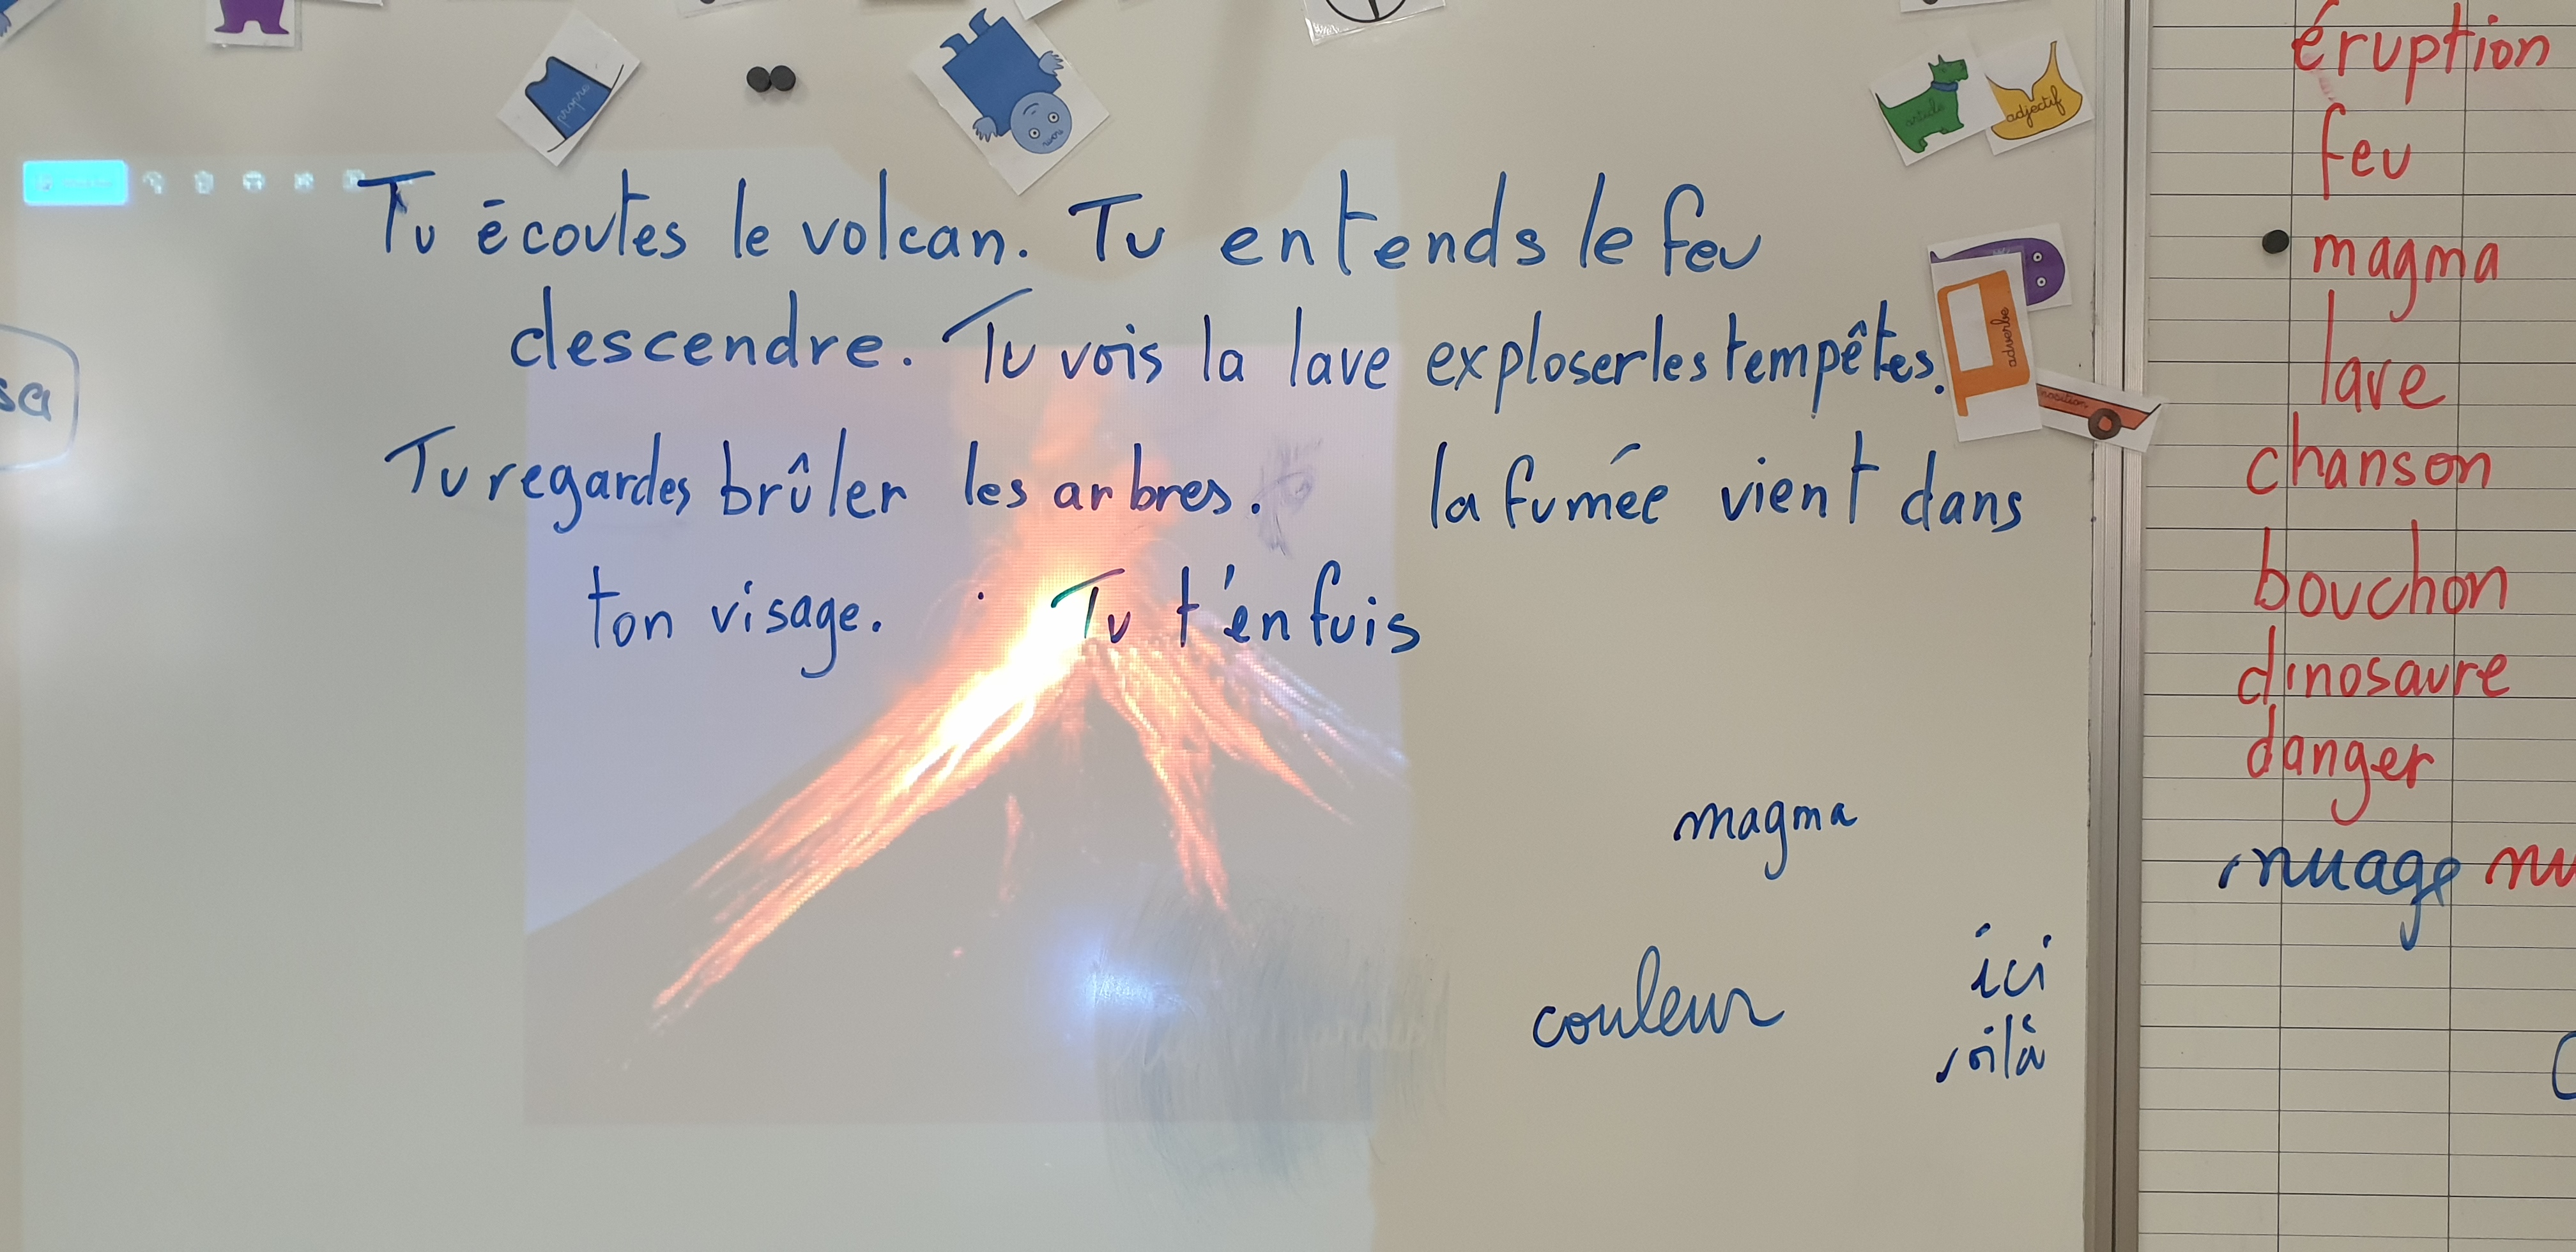 Tu écoutes le volcan. Tu entends le feu
descendre. Tu vois la lave exploser les tempêtes.
Tu regardes brûler les arbres. la fumée vient dans
ton visage. Tu t'enfuis
magma
couleur
ici
voilà
sa
propre
article
adjectif
adverbe
éruption
feu
magma
lave
chanson
bouchon
dinosaure
danger
nuage nu